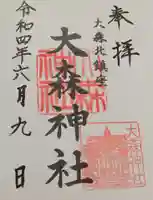 奉拝
大森北鎮守
大森神社
令和四年六月九日
大森神社